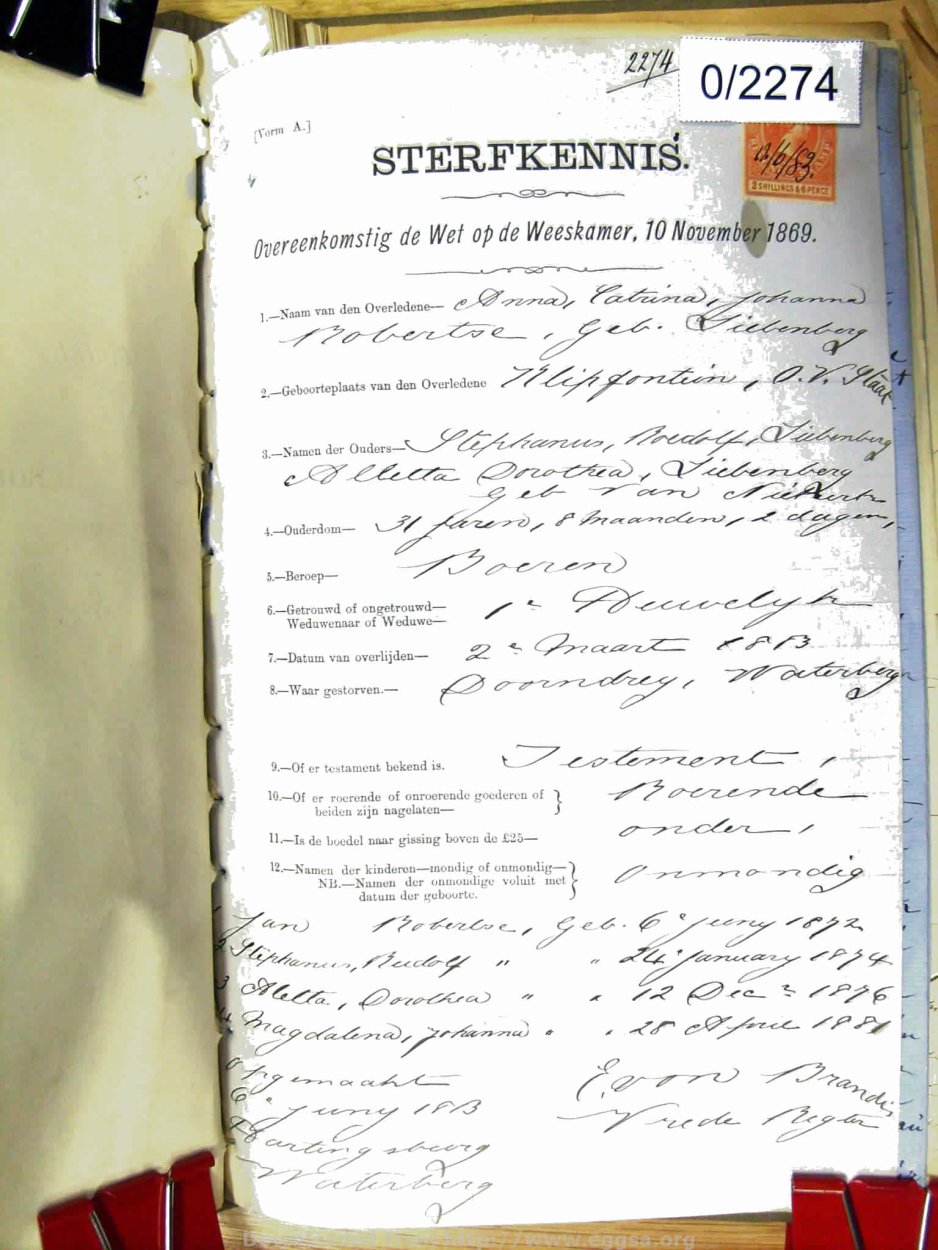 2274
0/2274
[Vorm A.]
STERFKENNIS.
12/6/83.
2 SHILLINGS & 6 PENCE
Overeenkomstig de Wet op de Weeskamer, 10 November 1869.
1.—Naam van den Overledene— Anna, Catrina, Johanna
Robertse, geb. Liebenberg
2.—Geboorteplaats van den Overledene Klipfontein, O. V. Staat
3.—Namen der Ouders— Stephanus, Roedolf, Liebenberg
Alletta Dorothea, Liebenberg
geb van Niekerk
4.—Ouderdom— 31 jaren, 8 maanden, 2 dagen,
5.—Beroep— Boeren
6.—Getrouwd of ongetrouwd— 1e Heuwelyk
Weduwenaar of Weduwe—
7.—Datum van overlijden— 2e Maart 1883
8.—Waar gestorven.— Doorndrey, Waterberg
9.—Of er testament bekend is. Testement,
10.—Of er roerende of onroerende goederen of Roerende
beiden zijn nagelaten—
11.—Is de boedel naar gissing boven de £25— onder,
12.—Namen der kinderen—mondig of onmondig— Onmondig
NB.—Namen der onmondige voluit met
datum der geboorte.
1 Jan Robertse, geb. 6e Juny 1872
2 Stephanus, Rudolf " " 24e January 1874
3 Aletta, Dorothea " " 12 Dec 1876
4 Magdalena, Johanna " " 28 April 1881
opgemaakt
6e Juny 1883
E. von Brandis
Vrede Regter
Hartingsburg
Waterberg
http://www.eggsa.org